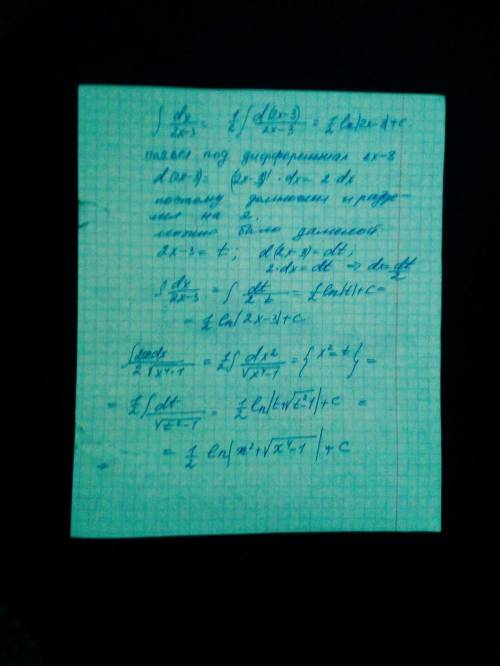 ∫ dx/(2x-3) = 1/2 ∫ d(2x-3)/(2x-3) = 1/2 ln|2x-3|+C.
под дифференциал 2x-3
d(2x-3) = (2x-3)' · dx = 2 dx
поэтому и разде-
на 2.
можно было заменой
2x-3 = t; d(2x-3) = dt;
2·dx = dt ⇒ dx = dt/2
∫ dx/(2x-3) = ∫ dt/(2·t) = 1/2 ln|t|+C =
= 1/2 ln|2x-3|+C
∫ 2xdx/(2√(x⁴-1)) = 1/2 ∫ dx²/√(x⁴-1) = {x² = t} =
= 1/2 ∫ dt/√(t²-1) = 1/2 ln|t+√(t²-1)|+C =
= 1/2 ln|x²+√(x⁴-1)|+C